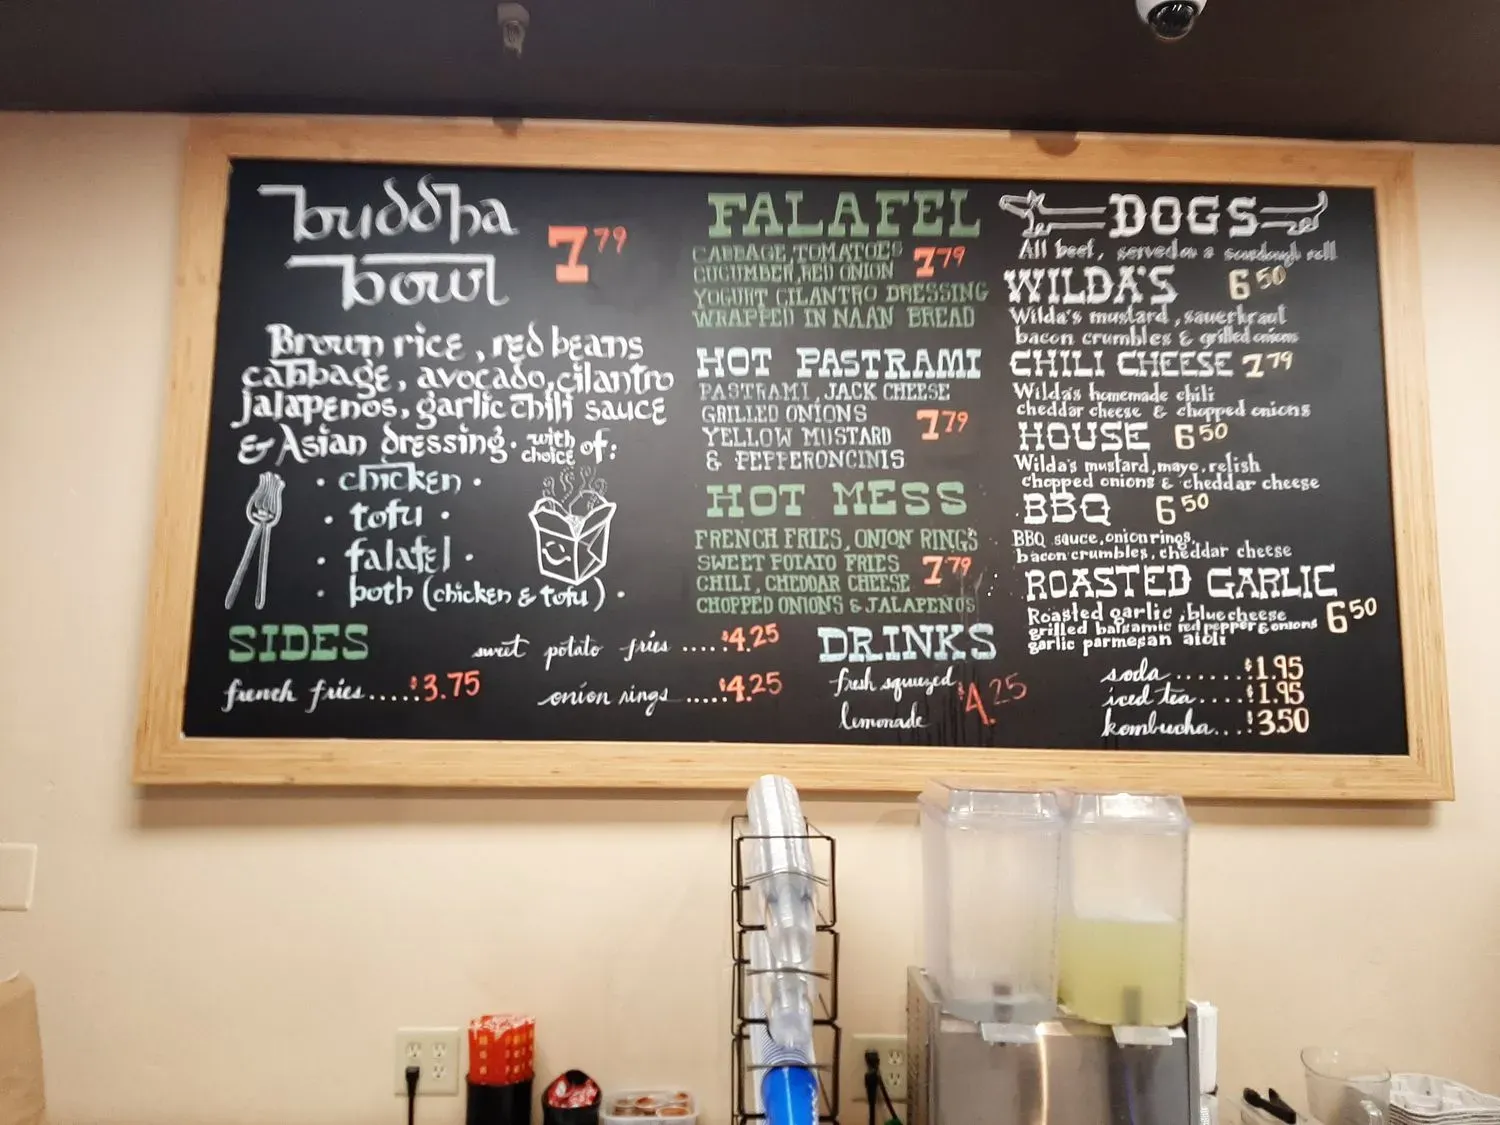 buddha
bowl
7.79
Brown rice, red beans
cabbage, avocado, cilantro
jalapenos, garlic chili sauce
& Asian dressing. with choice of:
• chicken •
• tofu •
• falafel •
• both (chicken & tofu) •
SIDES
french fries....$3.75
sweet potato fries .....$4.25
onion rings .....$4.25
FALAFEL
CABBAGE, TOMATOES
CUCUMBER, RED ONION 7.79
YOGURT CILANTRO DRESSING
WRAPPED IN NAAN BREAD
HOT PASTRAMI
PASTRAMI, JACK CHEESE
GRILLED ONIONS 7.79
YELLOW MUSTARD
& PEPPERONCINIS
HOT MESS
FRENCH FRIES, ONION RINGS
SWEET POTATO FRIES 7.79
CHILI, CHEDDAR CHEESE
CHOPPED ONIONS & JALAPENOS
DRINKS
fresh squeezed
lemonade $4.25
DOGS
All beef, served on a sourdough roll
WILDA'S 6.50
Wilda's mustard, sauerkraut
bacon crumbles & grilled onions
CHILI CHEESE 7.79
Wilda's homemade chili
cheddar cheese & chopped onions
HOUSE 6.50
Wilda's mustard, mayo, relish
chopped onions & cheddar cheese
BBQ 6.50
BBQ sauce, onion rings,
bacon crumbles, cheddar cheese
ROASTED GARLIC
Roasted garlic, blue cheese 6.50
grilled balsamic red pepper & onions
garlic parmesan aioli
soda.......$1.95
iced tea.....$1.95
kombucha...$3.50